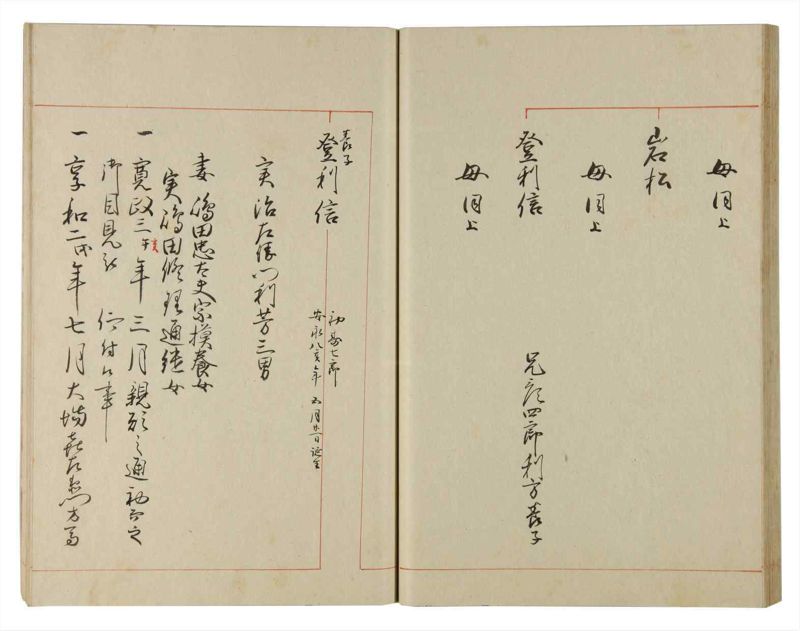 母同上
岩松
母同上
登利信
母同上
兄彦四郎利方養子
養子
登利信
初名七郎
安永八亥年 五月廿一日誕生
実治左衛門利芳三男
妻 嶋田忠左史宗摸養女
実嶋田修理通継女
一 寛政三亥年三月親願之通初而之
御目見被 仰付候事
一 享和二戌年七月大場喜左衛門方